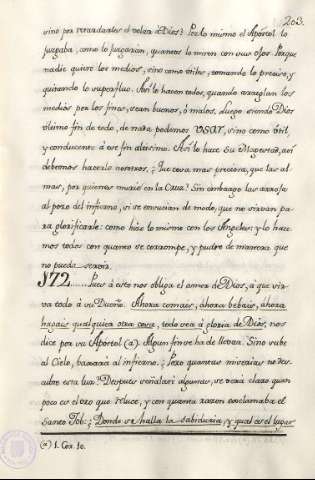 203.
sino por retardarles el volar a Dios? Por lo mismo el Apóstol lo
juzgaba, como lo juzgarán, quantos lo miren con sus ojos. Porque
nadie quiere los medios, sino como utiles, tomando lo preciso, y
quitando lo superfluo. Así lo hacen todos, quando arreglan los
medios por los fines, sean buenos, ó malos. Luego siendo Dios
último fin de todo, de nada podemos USAR, sino como útil,
y conducente á ese fin altísimo. Así lo hace Su Magestad, así
debemos hacerlo nosotros. ¿Que cosa mas preciosa, que las al-
mas, por quienes murió en la Cruz? Sin embargo las arroja
al pozo del infierno, si se envician de modo, que no sirvan pa-
ra glorificarle: como hizo lo mismo con los Angeles: y lo hace-
mos todos con quanto se corrompe, y pudre de manera que
no pueda servir.
872..... Pues á esto nos obliga el amor de Dios, á que sir-
va todo á su Dueño. Ahora comais, ahora bebais, ahora
hagais qualquiera otra cosa, todo sea á gloria de Dios, nos
dice por su Apóstol (a). Algun fin se ha de llevar. Sino sube
al Cielo, baxará al infierno. ¡Pero quantas miserias no des-
cubre esta luz! Despues señalaré algunas, se verá claro quan
poco es el oro que reluce, y con quanta razon exclamaba el
Santo Job: ¿Donde se halla la sabiduria, y qual es el lugar
(a) 1. Cor. 10.